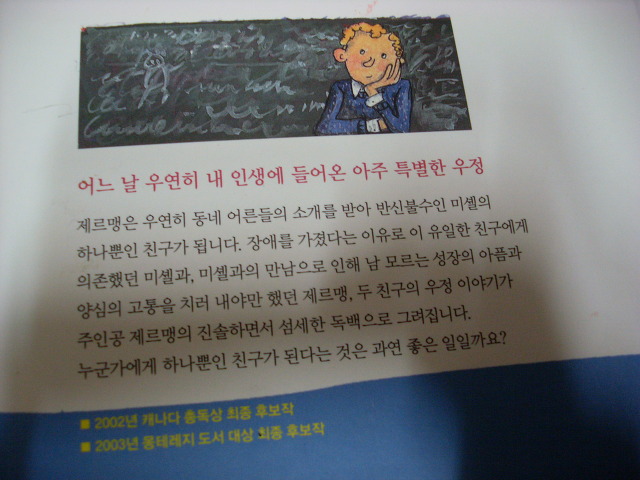 어느 날 우연히 내 인생에 들어온 아주 특별한 우정
제르맹은 우연히 동네 어른들의 소개를 받아 반신불수인 미셸의
하나뿐인 친구가 됩니다. 장애를 가졌다는 이유로 이 유일한 친구에게
의존했던 미셸과, 미셸과의 만남으로 인해 남 모르는 성장의 아픔과
양심의 고통을 치러 내야만 했던 제르맹, 두 친구의 우정 이야기가
주인공 제르맹의 진솔하면서 섬세한 독백으로 그려집니다.
누군가에게 하나뿐인 친구가 된다는 것은 과연 좋은 일일까요?
■ 2002년 캐나다 총독상 최종 후보작
■ 2003년 몽테레지 도서 대상 최종 후보작